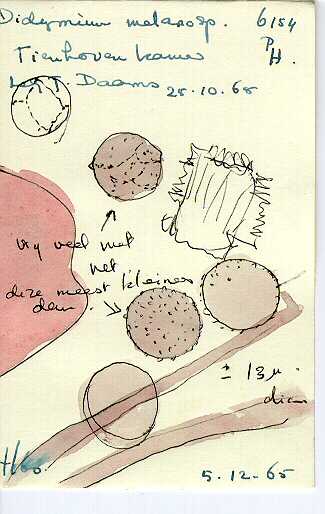 Didymium melanosp. 6154
PH.
Tienhoven
Leg. T. Daams 25.10.65
vrij veel met
net
deze meest kleiner
dan
± 13 µ.
diam
5.12.65